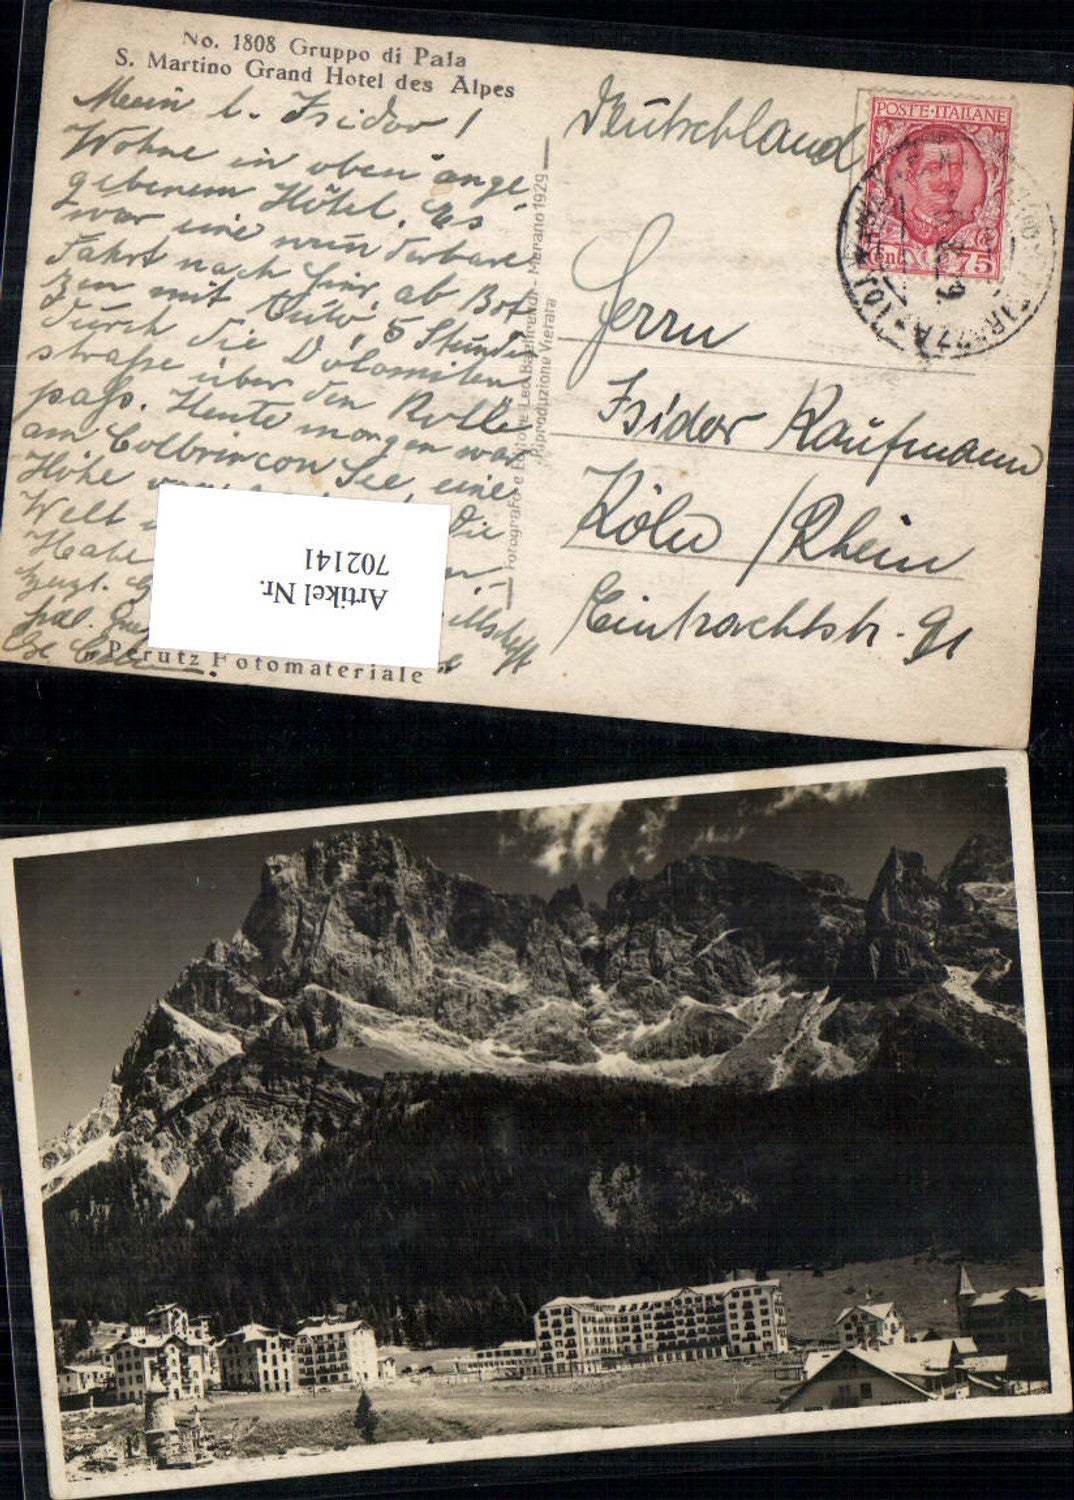 No. 1808 Gruppo di Pala
S. Martino Grand Hotel des Alpes
Mein l. Isidor!
Wohne in oben ange-
gebenem Hotel. Es
war eine wunderbare
Fahrt nach hier, ab Bot
zen mit Auto, 5 Stunden
durch die Dolomiten
straße über den Rolle
paß. Heute morgen war
am Colbricon See, eine
Höhe
Welt die
Habe
Fotografo e Editore Leo Bährendt - Merano 1929
Riproduzione Vietata
Perutz Fotomateriale
POSTE·ITALIANE
Cent. 75
Deutschland
Herrn
Isidor Kaufmann
Köln / Rhein
Eintrachtstr. 91
Artikel Nr.
702141